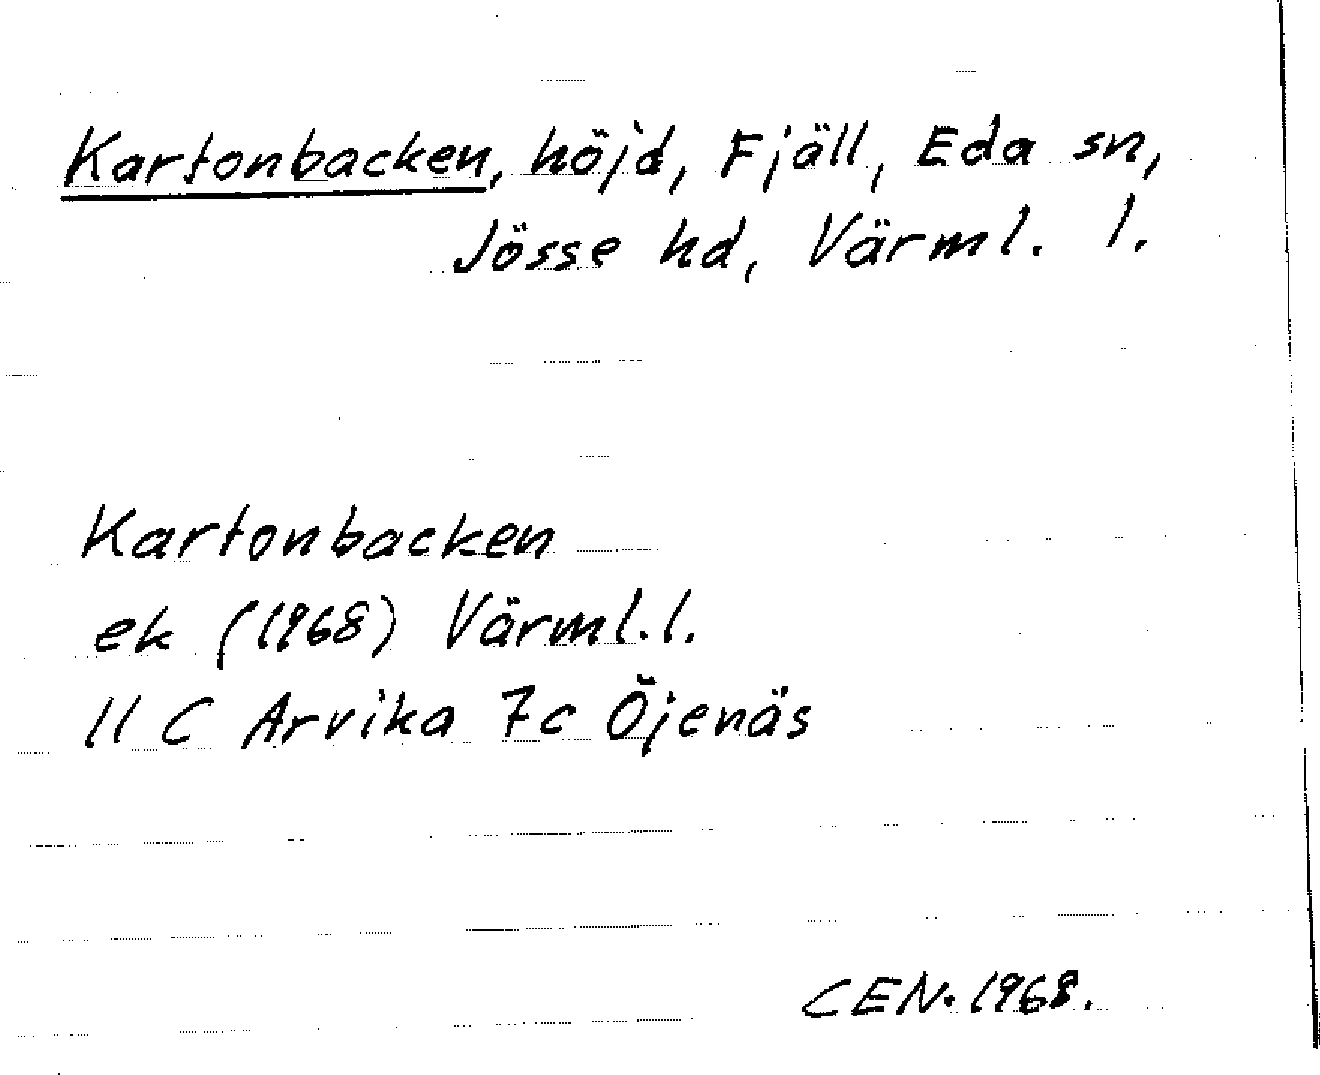 Kartonbacken, höjd, Fjäll, Eda sn,
Jösse hd, Värml. l.
Kartonbacken
ek (1968) Värml. l.
11 C Arvika 7c Öjenäs
CEN. 1968.